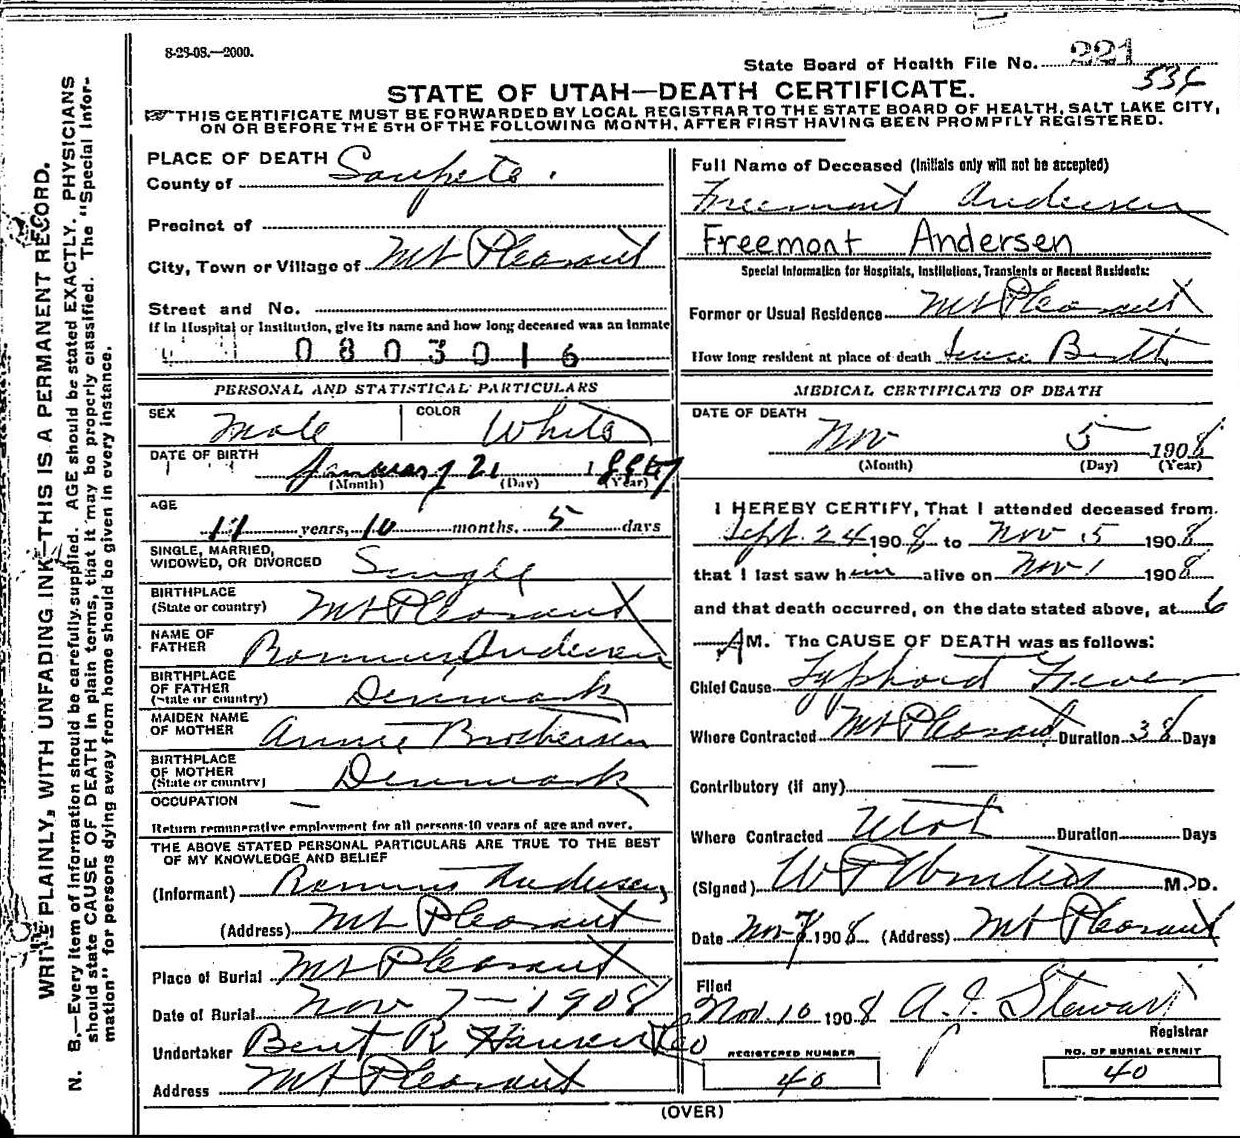 8-25-08.—2000.
State Board of Health File No. 221
534
STATE OF UTAH—DEATH CERTIFICATE.
THIS CERTIFICATE MUST BE FORWARDED BY LOCAL REGISTRAR TO THE STATE BOARD OF HEALTH, SALT LAKE CITY,
ON OR BEFORE THE 5TH OF THE FOLLOWING MONTH, AFTER FIRST HAVING BEEN PROMPTLY REGISTERED.
WRITE PLAINLY, WITH UNFADING INK—THIS IS A PERMANENT RECORD.
N. B.—Every item of information should be carefully supplied. AGE should be stated EXACTLY. PHYSICIANS
should state CAUSE OF DEATH in plain terms, that it may be properly classified. The "Special Infor-
mation" for persons dying away from home should be given in every instance.
PLACE OF DEATH
County of Sanpete.
Precinct of
City, Town or Village of Mt Pleasant
Street and No.
If in Hospital or Institution, give its name and how long deceased was an inmate
0803016
PERSONAL AND STATISTICAL PARTICULARS
SEX Male COLOR White
DATE OF BIRTH January 21
(Month) (Day) (Year)
AGE
years, 10 months. 5 days
SINGLE, MARRIED,
WIDOWED, OR DIVORCED Single
BIRTHPLACE
(State or country) Mt Pleasant
NAME OF
FATHER Andersen
BIRTHPLACE
OF FATHER
(State or country) Denmark
MAIDEN NAME
OF MOTHER Annie Brothersen
BIRTHPLACE
OF MOTHER
(State or country) Denmark
OCCUPATION —
Return remunerative employment for all persons 10 years of age and over.
THE ABOVE STATED PERSONAL PARTICULARS ARE TRUE TO THE BEST
OF MY KNOWLEDGE AND BELIEF
(Informant) Andersen
(Address) Mt Pleasant
Place of Burial Mt Pleasant
Date of Burial Nov 7 — 1908
Undertaker Bent R Hansen Co
Address Mt Pleasant
Full Name of Deceased (Initials only will not be accepted)
Freemont Andersen
Freemont Andersen
Special Information for Hospitals, Institutions, Transients or Recent Residents:
Former or Usual Residence Mt Pleasant
How long resident at place of death
MEDICAL CERTIFICATE OF DEATH
DATE OF DEATH
Nov 5 1908
(Month) (Day) (Year)
I HEREBY CERTIFY, That I attended deceased from
Sept. 24 1908 to Nov 5 1908
that I last saw him alive on Nov 1 1908
and that death occurred, on the date stated above, at 6
AM. The CAUSE OF DEATH was as follows:
Chief Cause Typhoid Fever
Where Contracted Mt Pleasant Duration 38 Days
—
Contributory (if any)
Where Contracted Utah Duration Days
(Signed) M. D.
Date Nov 7 1908 (Address) Mt Pleasant
Filed
Nov. 10 1908 A. J. Stewart
Registrar
REGISTERED NUMBER
40
NO. OF BURIAL PERMIT
40
(OVER)